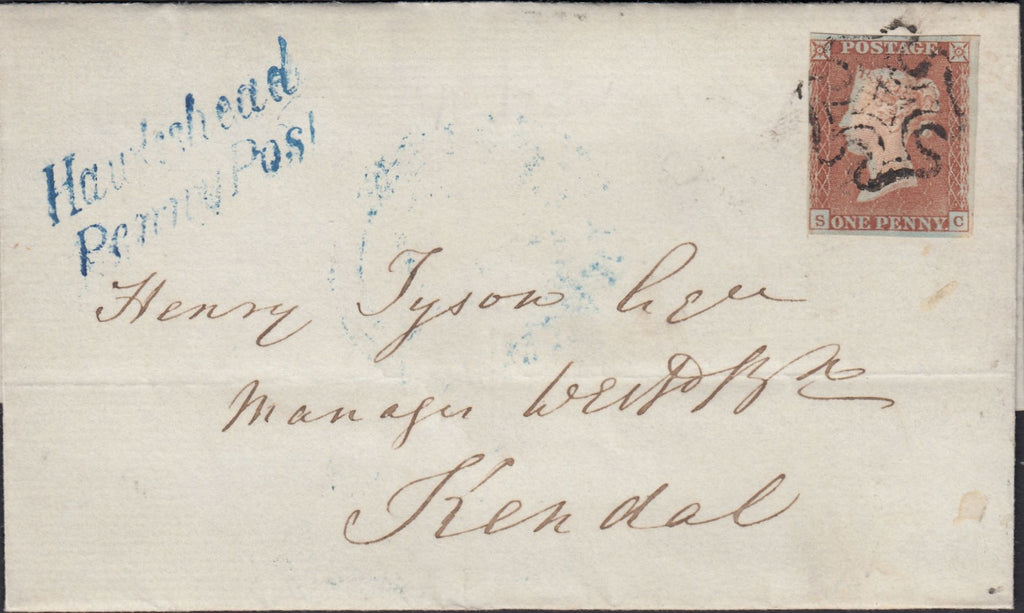 Hawkshead
Penny Post
POSTAGE
S ONE PENNY. C
Henry Tyson Esqre
Manager
Kendal